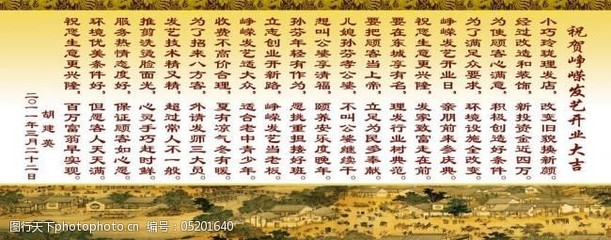 祝贺峥嵘发艺开业大吉
小巧玲珑理发店，改变旧貌换新颜。
经过改造和装饰，新投资金近四万。
为使顾客心满意，积极创造好条件。
为了满足众要求，环境设施全改变。
峥嵘发艺开业日，亲朋前来多庆典。
祝愿生意更兴隆，发家致富走在前。
要在东城享有名，理发行业树典范。
要把顾客当上帝，立足为民多奉献。
儿媳孙芬孝公婆，不叫公婆继续干。
想叫公婆享清福，颐养安乐度晚年。
孙芬年轻有作为，愿挑重担接好班。
立志创业开新路，峥嵘发艺当老板。
峥嵘发艺适大众，适合老中青少年。
收费不高价合理，夏有凉气冬有暖。
为了招来八方客，外请发师三大员。
发艺技术精又精，超过常人不一般。
推剪洗烫脸面光，心灵手巧赶时鲜。
服务热情态度好，保证顾客如心愿。
环境优美条件好，但愿客人天天满。
祝愿生意更兴隆，百万富翁早实现。
胡建英
二〇一一年三月二十二日
图行天下photophoto.cn 编号：05201640